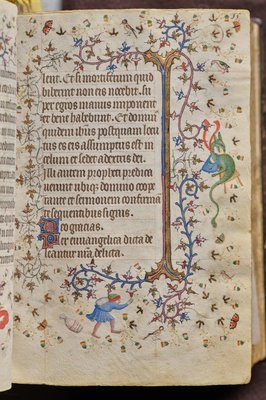 lent. Et si mortiferum quid
biberint non eis nocebit. Su
per egros manus imponent
et bene habebunt. Et dominꝰ
quidem ihūs postquam locu
tus est eis assumptus est in
celum et sedet a dextris dei.
Illi autem profecti predica
verunt ubiqꝫ domino coope
rante et sermonem confirma
te sequentibus signis.
Deo gracias.
Per euuangelica dicta de
leantur nrā delicta.